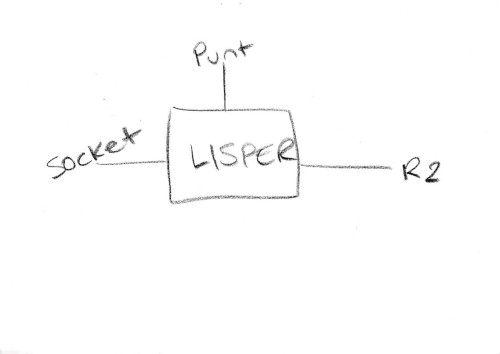 Punt
Socket
LISPER
R2